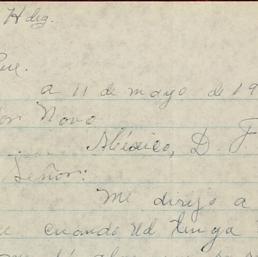 Hdeg.
Que.
a 11 de mayo de 19
or Novo
México, D. F
Señor:
Me dirijo a
e cuando Ud tenga